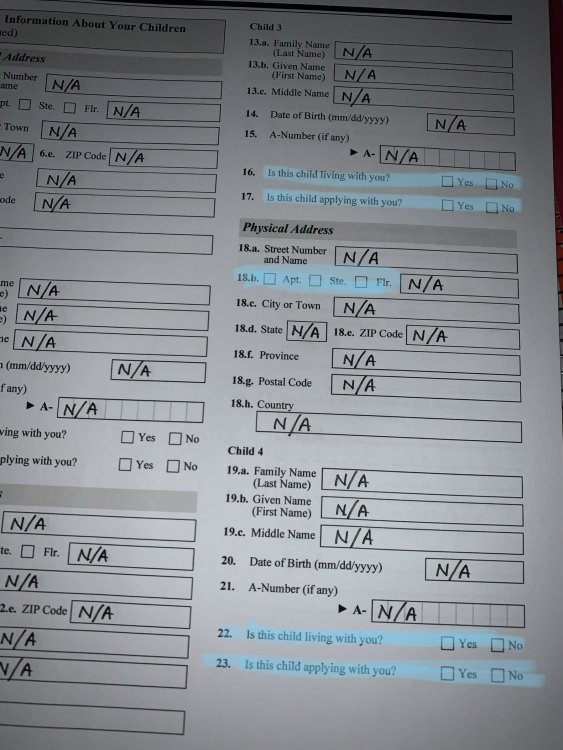 Information About Your Children
ed)
Address
Number
ame N/A
pt. Ste. Flr. N/A
Town N/A
N/A 6.e. ZIP Code N/A
e N/A
ode N/A
me
e) N/A
e) N/A
ne N/A
(mm/dd/yyyy) N/A
f any)
A- N/A
ving with you? Yes No
plying with you? Yes No
N/A
te. Flr. N/A
N/A
2.e. ZIP Code N/A
N/A
N/A
Child 3
13.a. Family Name
(Last Name) N/A
13.b. Given Name
(First Name) N/A
13.c. Middle Name N/A
14. Date of Birth (mm/dd/yyyy) N/A
15. A-Number (if any)
A- N/A
16. Is this child living with you? Yes No
17. Is this child applying with you? Yes No
Physical Address
18.a. Street Number
and Name N/A
18.b. Apt. Ste. Flr. N/A
18.c. City or Town N/A
18.d. State N/A 18.e. ZIP Code N/A
18.f. Province N/A
18.g. Postal Code N/A
18.h. Country
N/A
Child 4
19.a. Family Name
(Last Name) N/A
19.b. Given Name
(First Name) N/A
19.c. Middle Name N/A
20. Date of Birth (mm/dd/yyyy) N/A
21. A-Number (if any)
A- N/A
22. Is this child living with you? Yes No
23. Is this child applying with you? Yes No